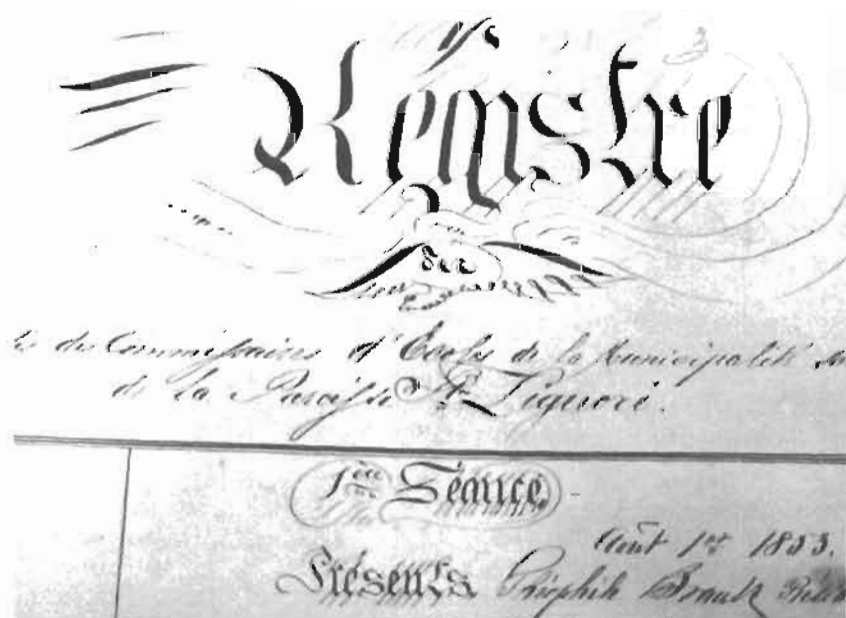 Régistre
des
des Commissaires d'Ecoles de la Municipalité
de la Paroisse St. Liguori.
1ère Séance
Août 1er 1853.
Présents Théophile Brault